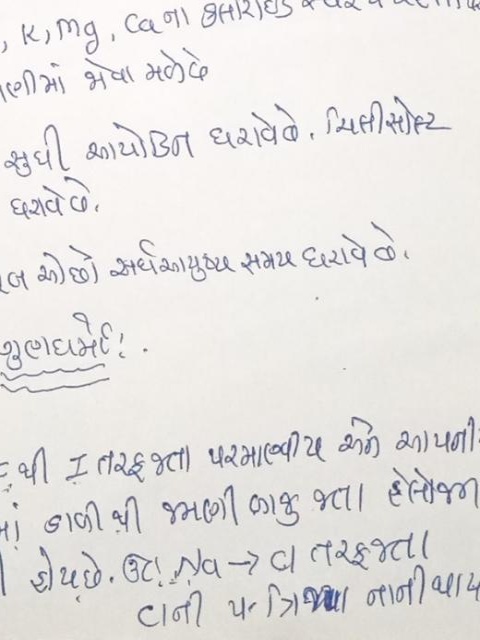 , K, Mg, Ca ના ક્લોરાઇડ
ણીમાં જોવા મળેછે
સુધી આયોડિન ધરાવેછે. ચિલીસોલ્ટ
ધરાવેછે.
ઓછો અર્ધઆયુષ્ય સમય ધરાવેછે.
ગુણધર્મો:
થી I તરફ જતા પરમાણ્વીય અને આયની
માં ડાબી થી જમણી બાજુ જતા હેલોજન
હોયછે. ઉદા. Na → Cl તરફ જતા
Clની પ. ત્રિજ્યા નાની થાય